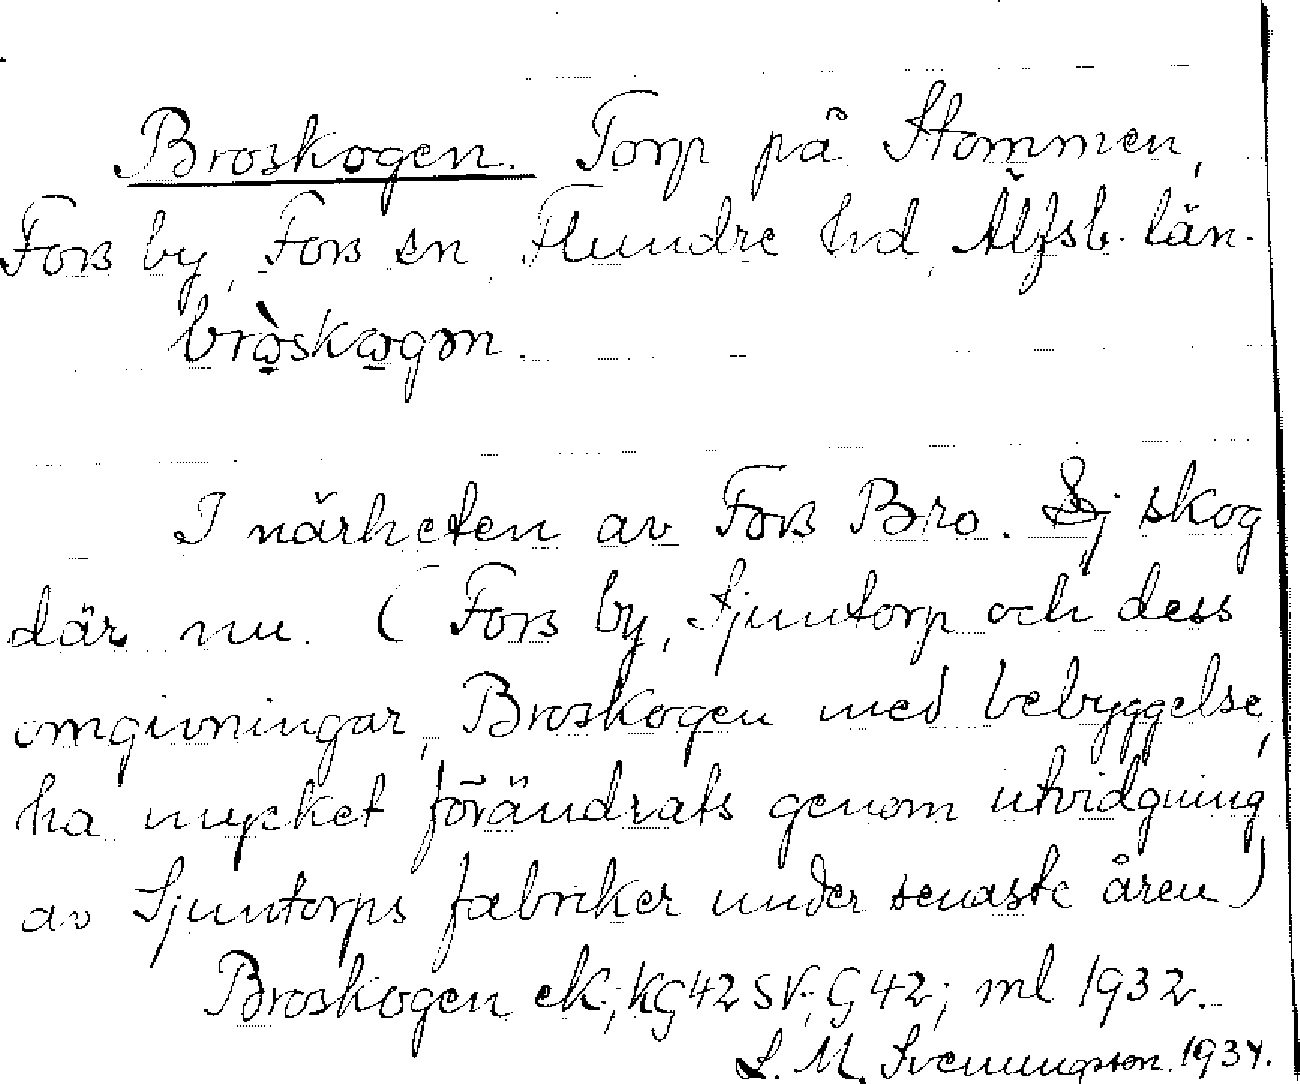 Broskogen. Torp på Stommen,
Fors by, Fors sn, Flundre hd, Älfsb. län.
brò̲skωgən.
I närheten av Fors Bro. Ej skog
där nu. (Fors by, Sjuntorp och dess
omgivningar, Broskogen med bebyggelse,
ha mycket förändrats genom utvidgning
av Sjuntorps fabriker under senaste åren)
Broskogen ek; KG42SV; G42; ml 1932.
S. M. Svenungsson. 1934.